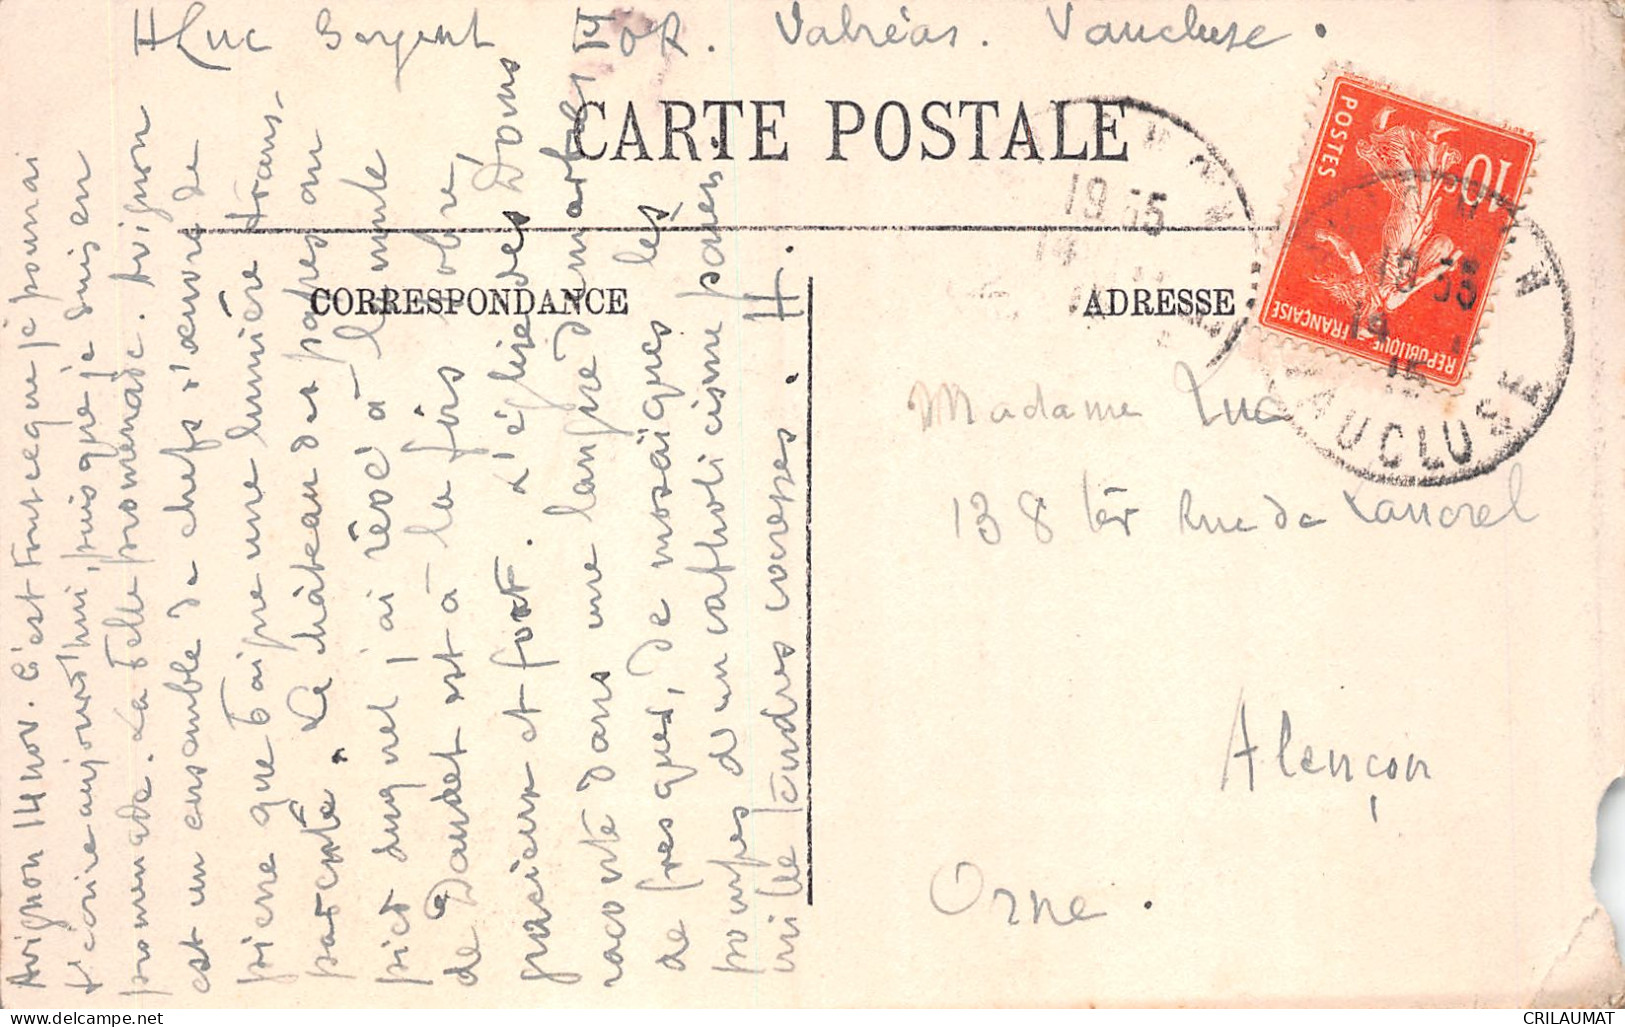 HLuc Sergent 11 or. Valréas. Vaucluse.
CARTE POSTALE
CORRESPONDANCE
ADRESSE
Avignon 14 nov. C'est tout ce que je pourrai
t'écrire aujourd'hui, puisque je suis en
promenade. La belle promenade. Avignon
est un ensemble de chefs d'œuvre de
pierre que baigne une lumière trans-
parente. Le château des papes au
pied duquel j'ai rêvé à la mule
de Daudet est à la fois sobre,
gracieux et fort. L'église des Doms
raconte dans une langue d'marbres
de fresques, de mosaïques les
pompes d'un catholicisme païen.
mille tendres caresses. H.
10
POSTES
REPUBLIQUE FRANÇAISE
19 35
14
19 35
14
15
VAUCLUSE
Madame Luc
138 ter Rue de Lancrel
Alençon
Orne.
CRILAUMAT